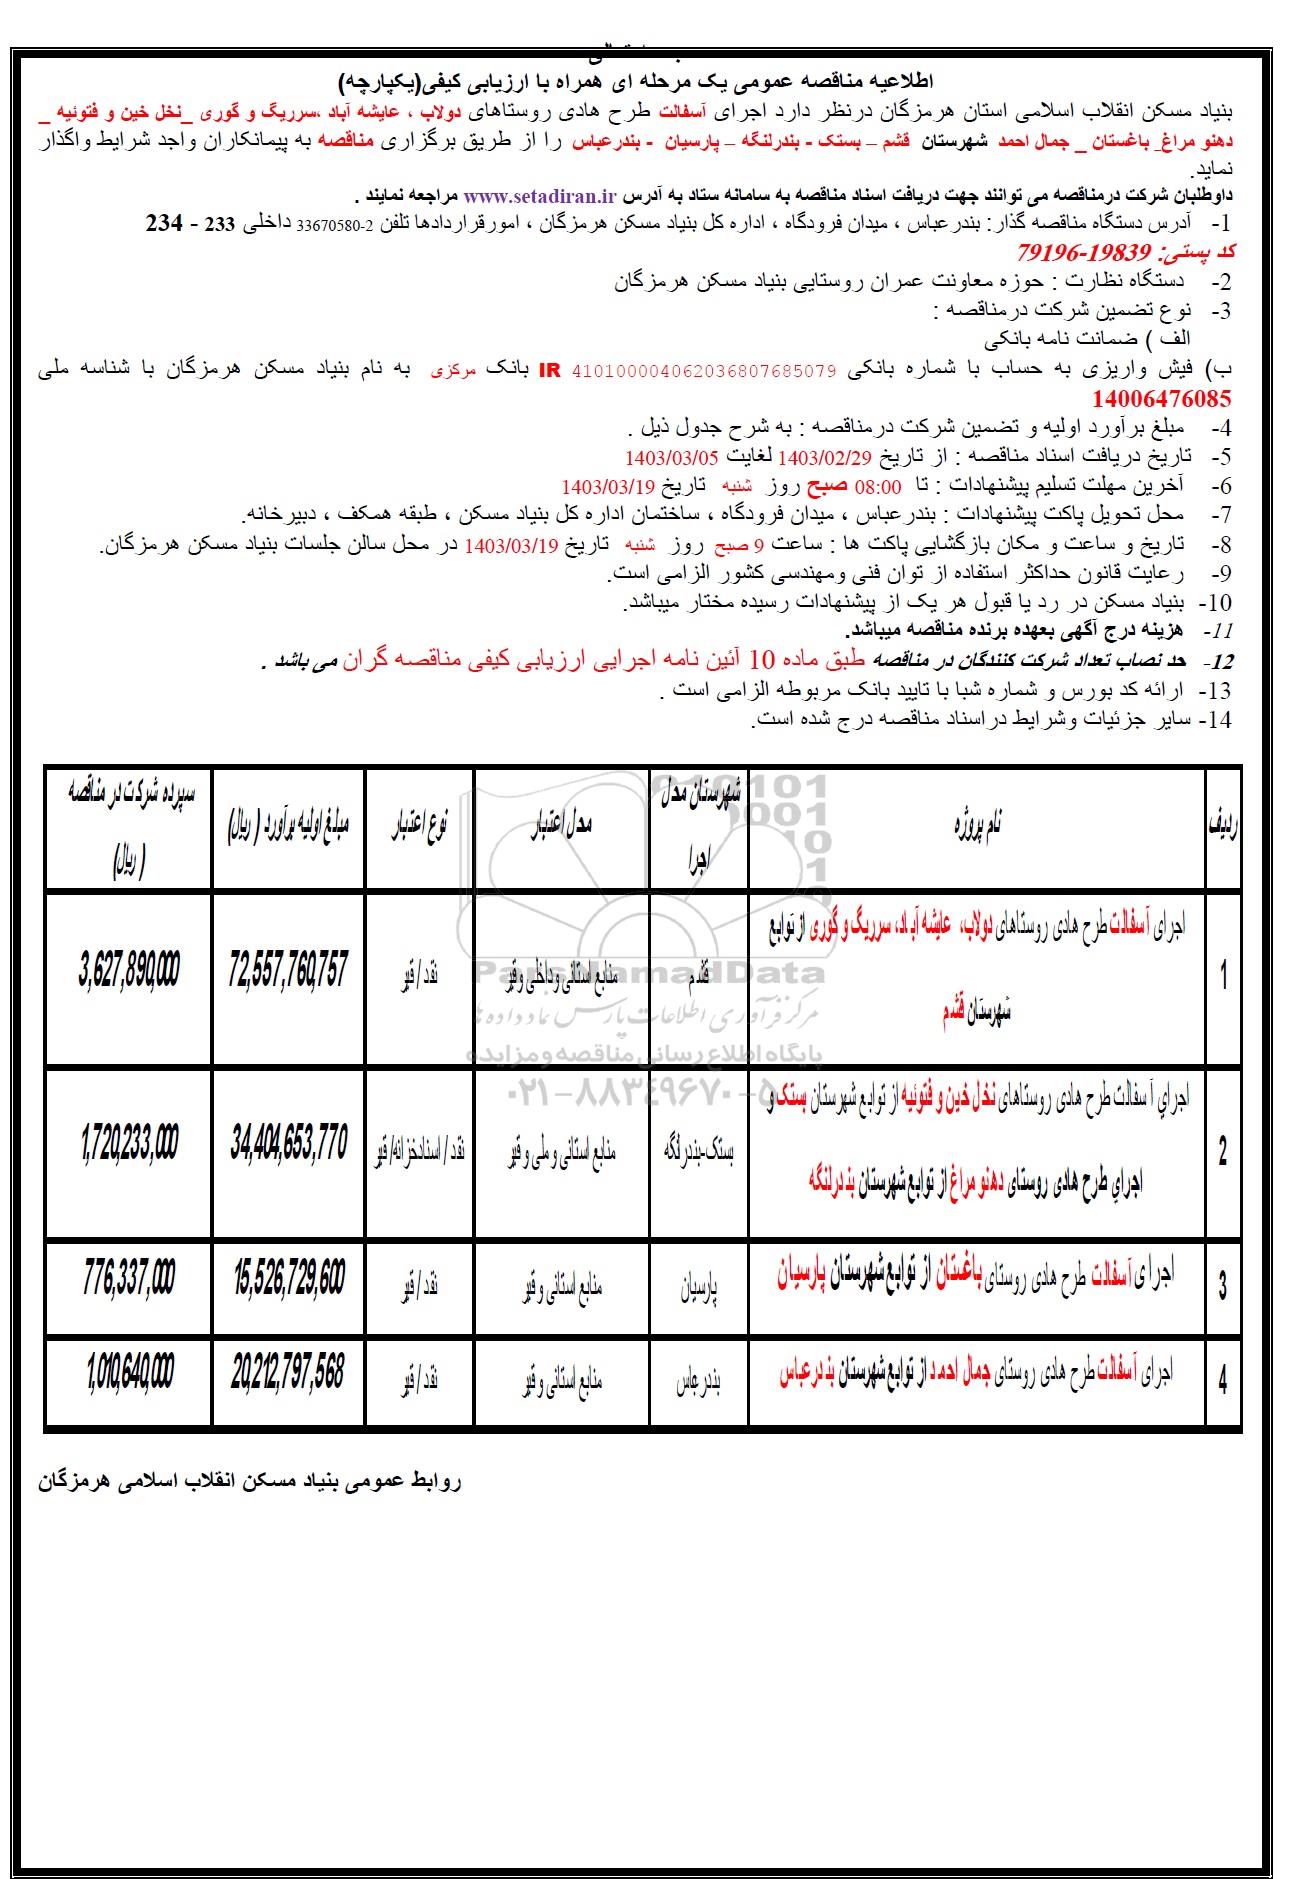 اطلاعیه مناقصه عمومی یک مرحله ای همراه با ارزیابی کیفی(یکپارچه)
بنیاد مسکن انقلاب اسلامی استان هرمزگان درنظر دارد اجرای آسفالت طرح هادی روستاهای دولاب ، عایشه آباد ،سرریگ و گوری _نخل خین و فتوئیه _
دهنو مراغ_ باغستان _ جمال احمد شهرستان قشم – بستک - بندرلنگه – پارسیان - بندرعباس را از طریق برگزاری مناقصه به پیمانکاران واجد شرایط واگذار
نماید.
داوطلبان شرکت درمناقصه می توانند جهت دریافت اسناد مناقصه به سامانه ستاد به آدرس www.setadiran.ir مراجعه نمایند .
1- آدرس دستگاه مناقصه گذار: بندرعباس ، میدان فرودگاه ، اداره کل بنیاد مسکن هرمزگان ، امورقراردادها تلفن 2-33670580 داخلی 233 - 234
کد پستی: 19839-79196
2- دستگاه نظارت : حوزه معاونت عمران روستایی بنیاد مسکن هرمزگان
3- نوع تضمین شرکت درمناقصه :
الف ) ضمانت نامه بانکی
ب) فیش واریزی به حساب با شماره بانکی IR 410100004062036807685079 بانک مرکزی به نام بنیاد مسکن هرمزگان با شناسه ملی
14006476085
4- مبلغ برآورد اولیه و تضمین شرکت درمناقصه : به شرح جدول ذیل .
5- تاریخ دریافت اسناد مناقصه : از تاریخ 1403/02/29 لغایت 1403/03/05
6- آخرین مهلت تسلیم پیشنهادات : تا 08:00 صبح روز شنبه تاریخ 1403/03/19
7- محل تحویل پاکت پیشنهادات : بندرعباس ، میدان فرودگاه ، ساختمان اداره کل بنیاد مسکن ، طبقه همکف ، دبیرخانه.
8- تاریخ و ساعت و مکان بازگشایی پاکت ها : ساعت 9 صبح روز شنبه تاریخ 1403/03/19 در محل سالن جلسات بنیاد مسکن هرمزگان.
9- رعایت قانون حداکثر استفاده از توان فنی ومهندسی کشور الزامی است.
10- بنیاد مسکن در رد یا قبول هر یک از پیشنهادات رسیده مختار میباشد.
11- هزینه درج آگهی بعهده برنده مناقصه میباشد.
12- حد نصاب تعداد شرکت کنندگان در مناقصه طبق ماده 10 آئین نامه اجرایی ارزیابی کیفی مناقصه گران می باشد .
13- ارائه کد بورس و شماره شبا با تایید بانک مربوطه الزامی است .
14- سایر جزئیات وشرایط دراسناد مناقصه درج شده است.
ردیف نام پروژه شهرستان محل اجرا محل اعتبار نوع اعتبار مبلغ اولیه برآورد ( ریال) سپرده شرکت در مناقصه ( ریال)
1 اجرای آسفالت طرح هادی روستاهای دولاب، عایشه آباد، سرریگ و گوری از توابع
شهرستان قشم
قشم منابع استانی و داخلی و قیر نقد / قیر 72,557,760,757 3,627,890,000
2 اجراي آسفالت طرح هادی روستاهای نخل خین و فتوئیه از توابع شهرستان بستک و
اجراي طرح هادی روستای دهنو مراغ از توابع شهرستان بندرلنگه
بستک-بندرلنگه منابع استانی و ملی و قیر نقد / اسنادخزانه/ قیر 34,404,653,770 1,720,233,000
3 اجرای آسفالت طرح هادی روستای باغستان از توابع شهرستان پارسیان پارسیان منابع استانی و قیر نقد / قیر 15,526,729,600 776,337,000
4 اجرای آسفالت طرح هادی روستای جمال احمد از توابع شهرستان بندرعباس بندرعباس منابع استانی و قیر نقد / قیر 20,212,797,568 1,010,640,000
ParsNamadData
مرکز فرآوری اطلاعات پارس نماد داده ها
پایگاه اطلاع رسانی مناقصه و مزایده
۰۲۱-۸۸۳۴۹۶۷۰-۵
روابط عمومی بنیاد مسکن انقلاب اسلامی هرمزگان